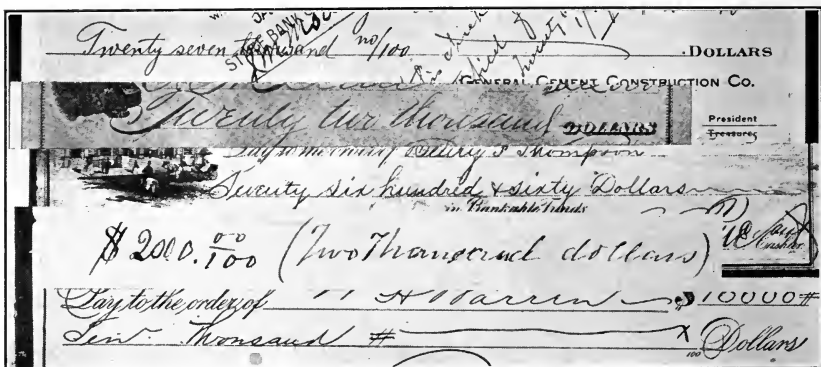 Twenty seven thousand no/100 DOLLARS
STATE BANK
GENERAL CEMENT CONSTRUCTION CO.
Twenty two thousand DOLLARS
President
Treasurer
Pay to the order of Henry S Thompson
Twenty six hundred & sixty Dollars
in Bankable Funds
$2000.00/100 (Two Thousand dollars)
Cashier
Pay to the order of H Warren $10000#
Ten Thousand # x/100 Dollars